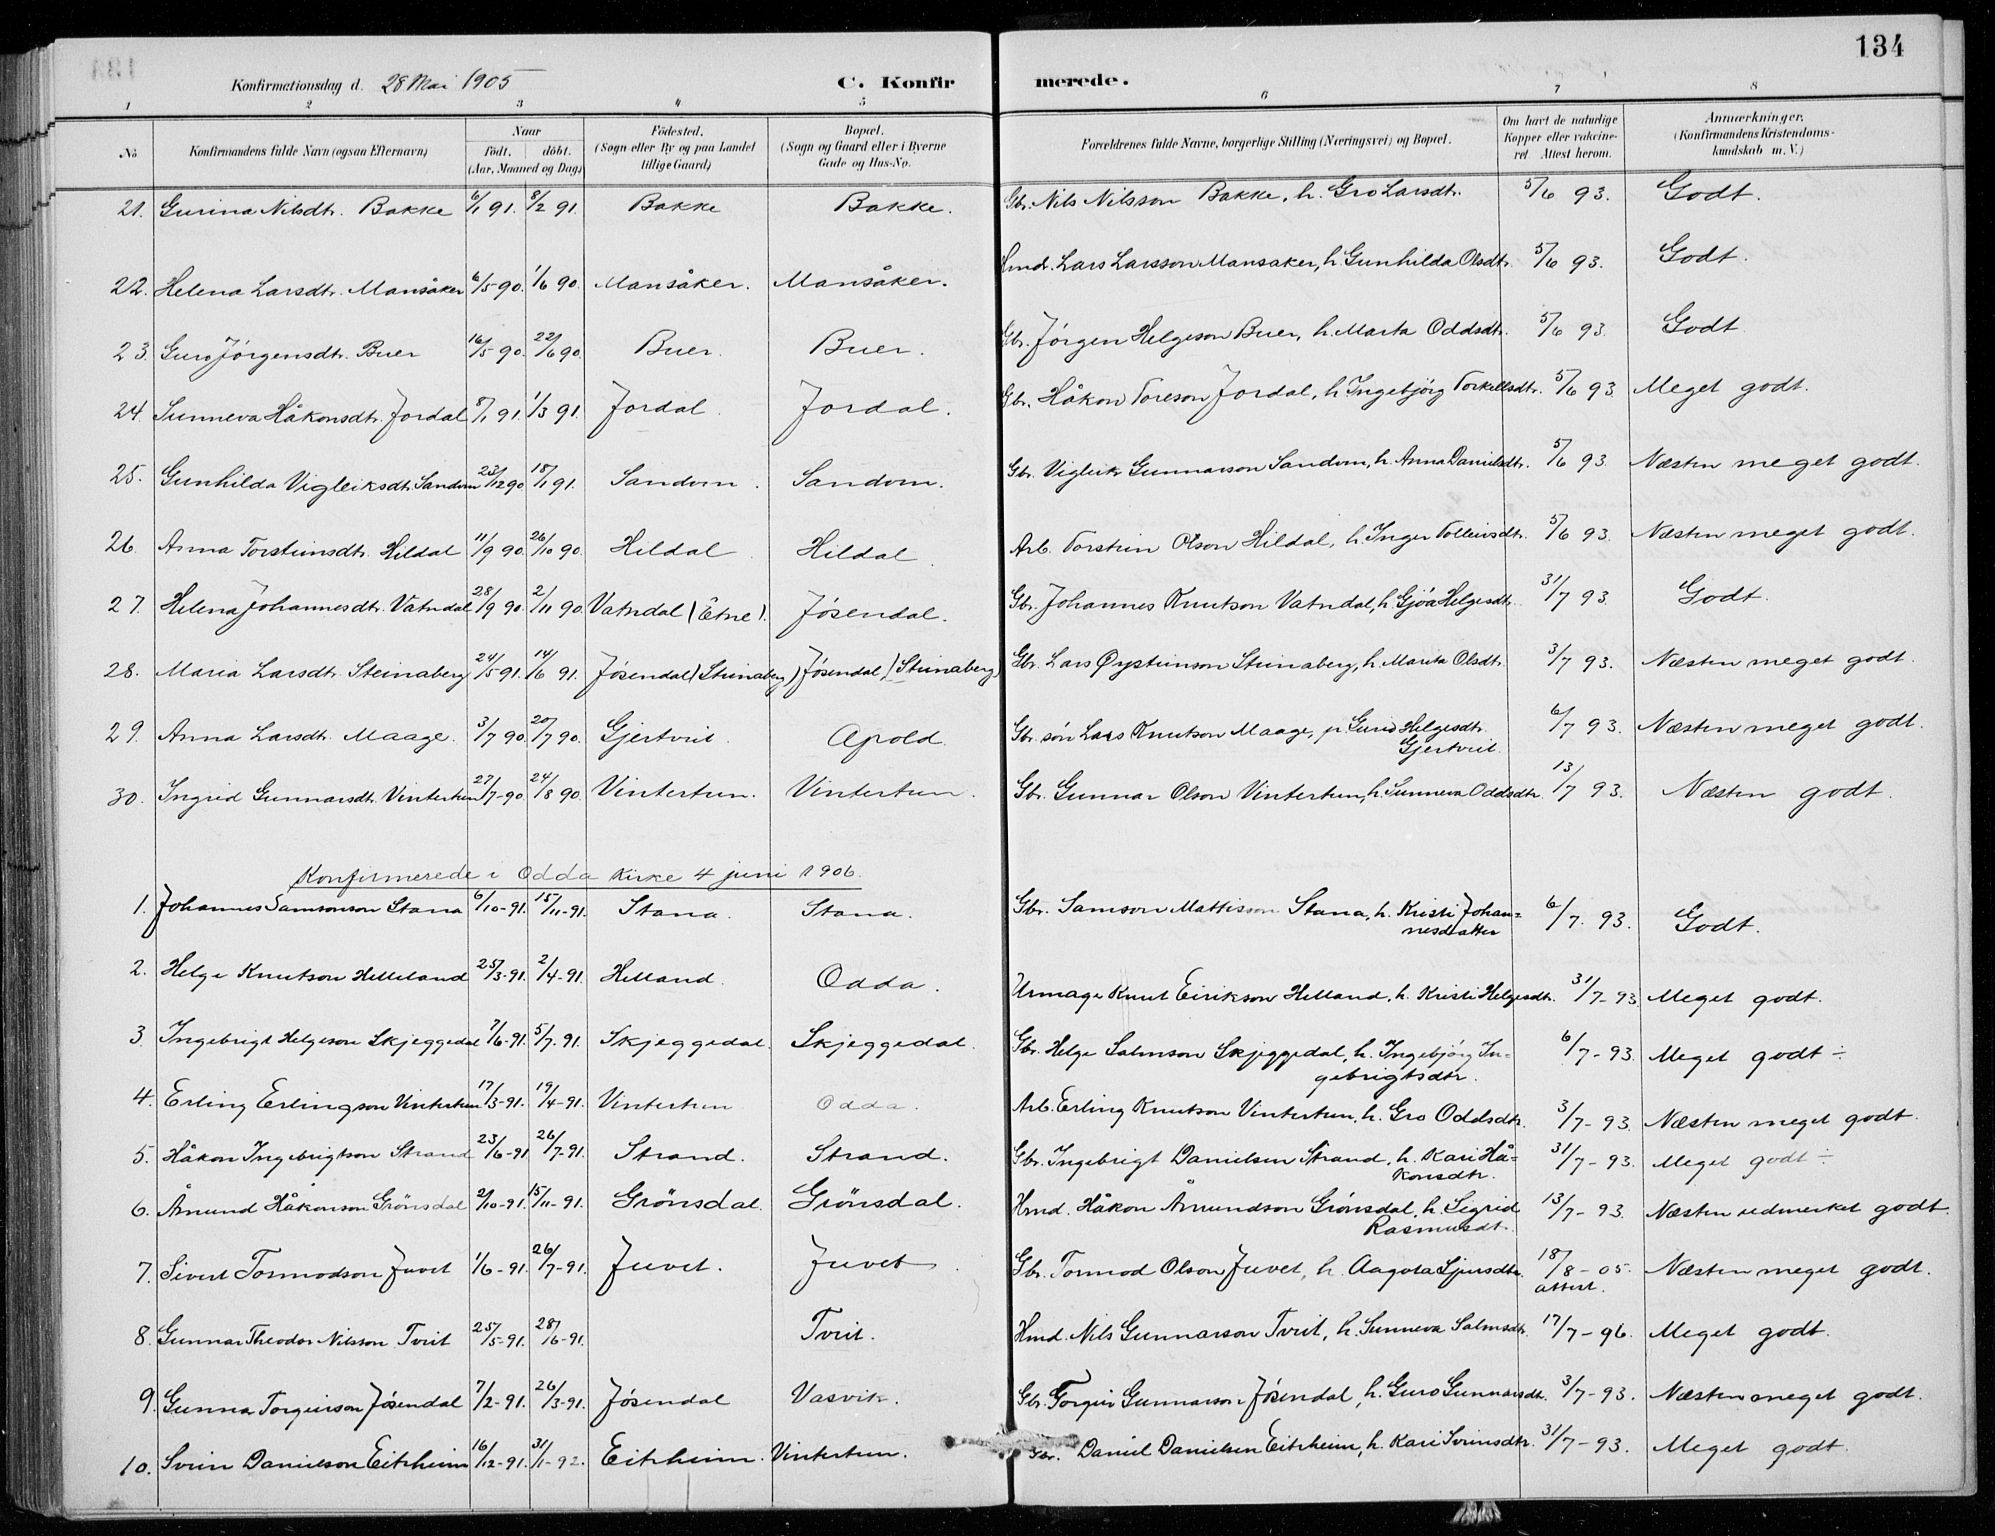 134
Konfirmationsdag d. 28 Mai 1905 C. Konfirmerede.
1 2 3 4 5 6 7 8
No
Konfirmandens fulde Navn (ogsaa Efternavn)
Naar
født. døbt.
(Aar, Maaned og Dag)
Fødested.
(Sogn eller By og paa Landet
tillige Gaard)
Bopæl.
(Sogn og Gaard eller i Byerne
Gade og Hus-No.
Forældrenes fulde Navne, borgerlige Stilling (Næringsvei) og Bopæl.
Om havt de naturlige
Kopper eller vakcine-
ret Attest herom.
Anmærkninger.
(Konfirmandens Kristendoms-
kundskab m. V.)
21. Gurina Nilsdtr. Bakke 6/1 91. 8/2 91. Bakke Bakke. Gbr. Nils Nilsson Bakke, h. Gro Larsdtr. 5/6 93. Godt.
22. Helena Larsdtr. Mansåker 6/5 90. 1/6 90. Mansåker. Mansåker. Hmd. Lars Larsson Mansaker, h. Gunhilda Olsdtr. 5/6 93. Godt.
23. Guro Jørgensdtr. Buer 16/5 90. 22/6 90. Buer. Buer. Gbr. Jørgen Helgeson Buer, h. Marta Oddsdtr. 5/6 93. Godt
24. Sunneva Håkonsdtr. Jordal 8/1 91. 1/3 91. Jordal. Jordal. Gbr. Håkon Toreson Jordal, h. Ingebjörg Torkellsdtr. 5/6 93. Meget godt.
25. Gunhilda Vigleiksdtr. Sandvin 23/12 90 18/1 91. Sandvin. Sandvin. Gbr. Vigleik Gunnarson Sandvin, h. Anna Danielsdtr. 5/6 93. Næsten meget godt.
26. Anna Torsteinsdtr. Hildal 11/9 90. 26/10 90. Hildal Hildal Arb. Torstein Olson Hildal, h. Inger Tolleivsdtr. 5/6 93. Næsten meget godt.
27. Helena Johannesdtr. Vatndal 28/9 90. 2/11 90. Vatndal (Etne). Jøsendal. Gbr. Johannes Knutson Vatndal, h. Gjöa Helgesdtr. 31/7 93. Godt.
28. Maria Larsdtr. Steinaberg 24/5 91. 14/6 91. Jøsendal (Steinaberg) Jøsendal (Steinaberg) Gbr. Lars Øysteinson Steinaberg, h. Marita Olsdtr. 3/7 93. Næsten meget godt.
29. Anna Larsdtr. Maage. 3/7 90. 20/7 90. Gjertveit Apold Gbr. søn Lars Knutson Maage, p. Gurid Helgesdtr.
Gjertveit. 6/7 93. Næsten meget godt.
30. Ingrid Gunnarsdtr. Vintertun 27/7-90 24/8 90. Vintertun. Vintertun. Gbr. Gunnar Olson Vintertun, h. Sunneva Oddsdtr. 13/7 93. Næsten godt.
Konfirmerede i Odda Kirke 4 juni 1906.
1. Johannes Samsonson Stana 6/10-91. 15/11-91. Stana. Stana. Gbr. Samson Mattisson Stana, h. Kristi Johan=
nesdatter 6/7. 93. Godt.
2. Helge Knutson Helleland 25/3-91. 2/4-91. Helland. Odda. Urmager Knut Eirikson Helland, h. Kristi Helgesdtr. 31/7-93. Meget godt.
3. Ingebrigt Helgeson Skjeggedal 7/6-91. 5/7. 91. Skjeggedal. Skjeggedal. Gbr. Helge Salmson Skjeggedal, h. Ingebjörg In=
gebrigtsdtr. 6/7-93. Meget godt ÷
4. Erling Erlingson Vintertun 17/3-91. 19/4-91. Vintertun Odda. Arb. Erling Knutson Vintertun, h. Gro Oddsdtr. 3/7-93. Næsten meget godt.
5. Håkon Ingebrigtson Strand 23/6-91 26/7-91. Strand. Strand. Gbr. Ingebrigt Danielsen Strand, h. Kari Hå=
konsdtr. 31/7-93. Meget godt ÷
6. Åmund Håkonson Grönsdal 2/10-91. 15/11-91. Grönsdal. Grönsdal. Hmd. Håkon Åmundson Grönsdal, h. Sigrid
Rasmusdt. 13/7-93. Næsten udmerket godt.
7. Sivert Tormodson Juvet 1/6-91. 26/7-91. Juvet. Juvet. Gbr. Tormod Olson Juvet, h. Aagota Sjursdtr. 18/8-05.
attest. Næsten meget godt.
8. Gunnar Theodor Nilsson Tveit 25/5-91. 28/6-91. Tveit. Hmd. Nils Gunnarson Tveit, h. Sunneva Salmsdtr. 17/7-96. Meget godt.
9. Gunnar Torgeirson Jøsendal 7/2-91. 26/3-91. Jøsendal Vasvik. Gbr. Torgeir Gunnarson Jøsendal, h. Guro Gunnarsdt. 3/7-93. Næsten meget godt.
10. Svein Danielson Eitrheim 16/12-91. 31/1-92. Eitrheim. Vintertun. Gbr. Daniel Danielsen Eitrheim, h. Kari Sveinsdtr. 31/7-93. Meget godt.